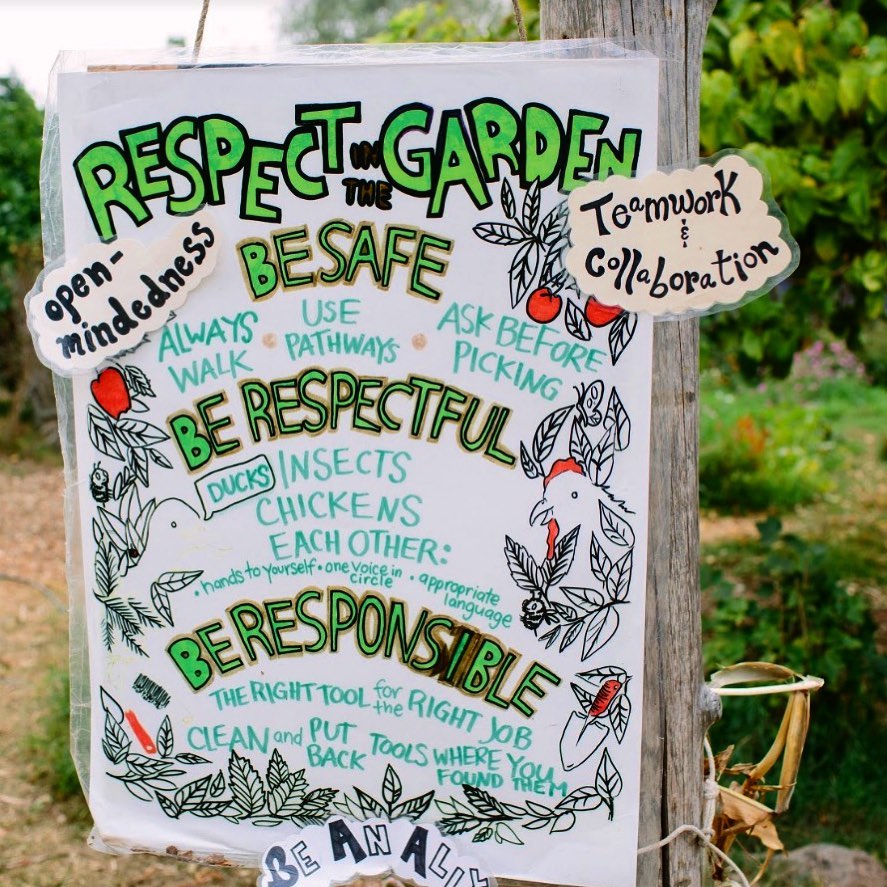 RESPECT IN THE GARDEN
Teamwork
&
Collaboration
open-
mindedness
BE SAFE
ALWAYS WALK • USE PATHWAYS • ASK BEFORE PICKING
BE RESPECTFUL
DUCKS INSECTS
CHICKENS
EACH OTHER:
• hands to yourself • one voice in circle • appropriate language
BE RESPONSIBLE
THE RIGHT TOOL for the RIGHT JOB
CLEAN and PUT BACK TOOLS WHERE YOU FOUND THEM
BE AN ALLY